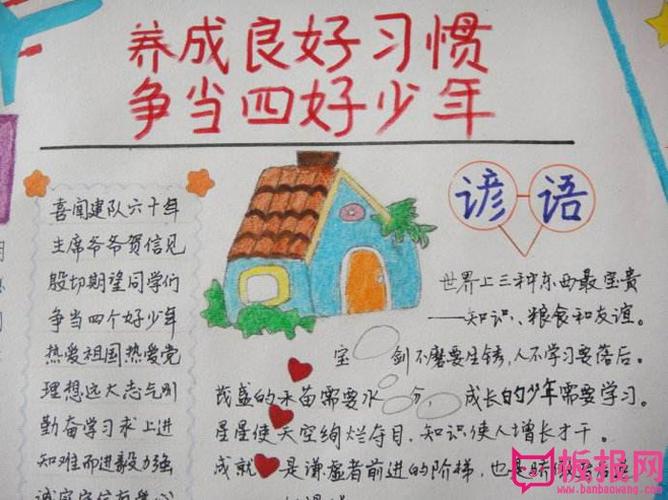 养成良好习惯
争当四好少年
喜闻建队六十年
主席爷爷贺信见
殷切期望同学们
争当四个好少年
热爱祖国热爱党
理想远大志气刚
勤奋学习求上进
知难而进毅力强
谚语
世界上三种东西最宝贵
——知识、粮食和友谊。
宝剑不磨要生锈，人不学习要落后。
茂盛的禾苗需要水分，成长的少年需要学习。
星星使天空绚烂夺目，知识使人增长才干。
成就是谦虚者前进的阶梯，也是骄傲
板报网
www.banbaowang.com